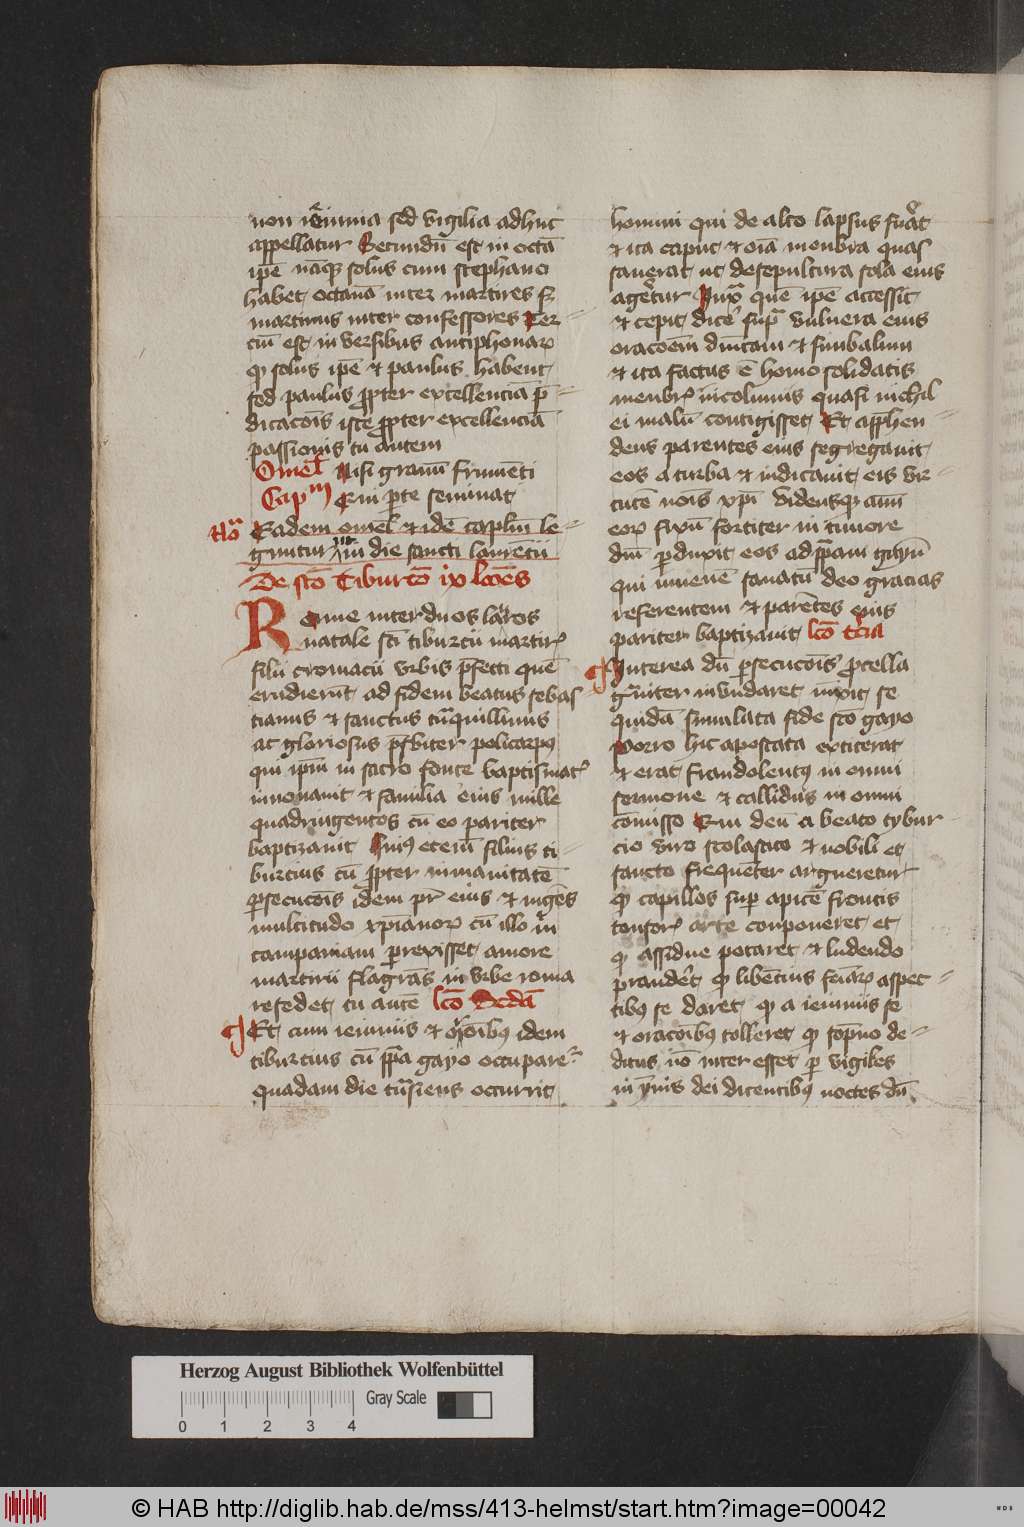 non ieiunia sed vigilia adhuc
appellatur Secundū est in octā
ipē nāq solus cum stephano
habet octauā inter martires sꝫ
martinus inter confessores Ter
ciū est in versibus antiphonaꝝ
ꝙ solus ipē et paulus habent
sed paulus ꝓpter excellenciā p̄
dicacōis iste ꝓpter excellenciā
passionis tu autem
Omel Nisi granū frumēti
Capm Qui parte seminat
No Eadem omel et idē caplm le
guntur in die sancti laurētii
De sto Tiburcio ix lcōes
Rome inter duos lauros
natale sci tiburcii martirꝭ
filii cromacii vrbis p̄fecti quē
erudierūt ad fidem beatus sebas
tianus et sanctus tranquillinus
ac gloriosus p̄sbiter policarpꝰ
qui ipm in sacro fonte baptismatꝭ
innouauit et familia eius mille
quadringentos cū eo pariter
baptizauit Huiꝰ eteim filius ti
burcius cū ꝓpter inmanitatē
ꝑsecucōis idem pr̄ eius et ingēs
multitudo xpianoꝝ cū illo in
campaniam perrexisset amore
martirii flagrās in vrbe roma
resedet tu autē lcō Secda
Et cum ieiuniis et orōibꝰ idem
tiburcius cū ppa gayo occuparetꝰ
quadam die trāsiens occurrit
homini qui de alto lapsus fuāt
et ita caput et oīa menbra quas
sauerat ut de sepultura sola eius
ageretur Iuxͣ quē ipē accessit
et cepit dicē supͣ vulnera eius
oracoēm dnīcam et simbalum
et ita factus ē homo solidatis
menbrꝭ incolumis quasi nichil
ei malū contigisset Et apphen
dens parentes eius segregauit
eos a turba et indicauit eis vir
tutē nois xpi vidensqꝫ aim
eoꝝ fixū fortiter in timore
dni perduxit eos ad ppam gayū
qui iuuenē sanatū deo gracias
referentem et parētes eius
pariter baptizauit lcō tercia
Interea dū ꝑsecucōis ꝓcella
grauiter invndaret iūxit se
quidā simulata fide sto gayo
Porro hic apostata extiterat
et erat fraudolentꝰ in omni
sermone et callidus in omni
cōmisso Qui deū a beato tybur
cio viro scolastico et nobili et
sancto frequēter argueretur
ꝙ capillos suꝑ apicē frontis
tonsorꝭ arte conponeret et
ꝙ assidue potaret et ludendo
pranderet ꝙ libēcius feīaꝝ aspec
tibꝰ se daret ꝙ a ieiuniis se
et oracōibꝰ tolleret ꝙ sōpno de
ditus nō inter esset ꝑ vigiles
in ymnis dei dicentibꝰ noctes dū
Herzog August Bibliothek Wolfenbüttel
Gray Scale
0 1 2 3 4
© HAB http://diglib.hab.de/mss/413-helmst/start.htm?image=00042